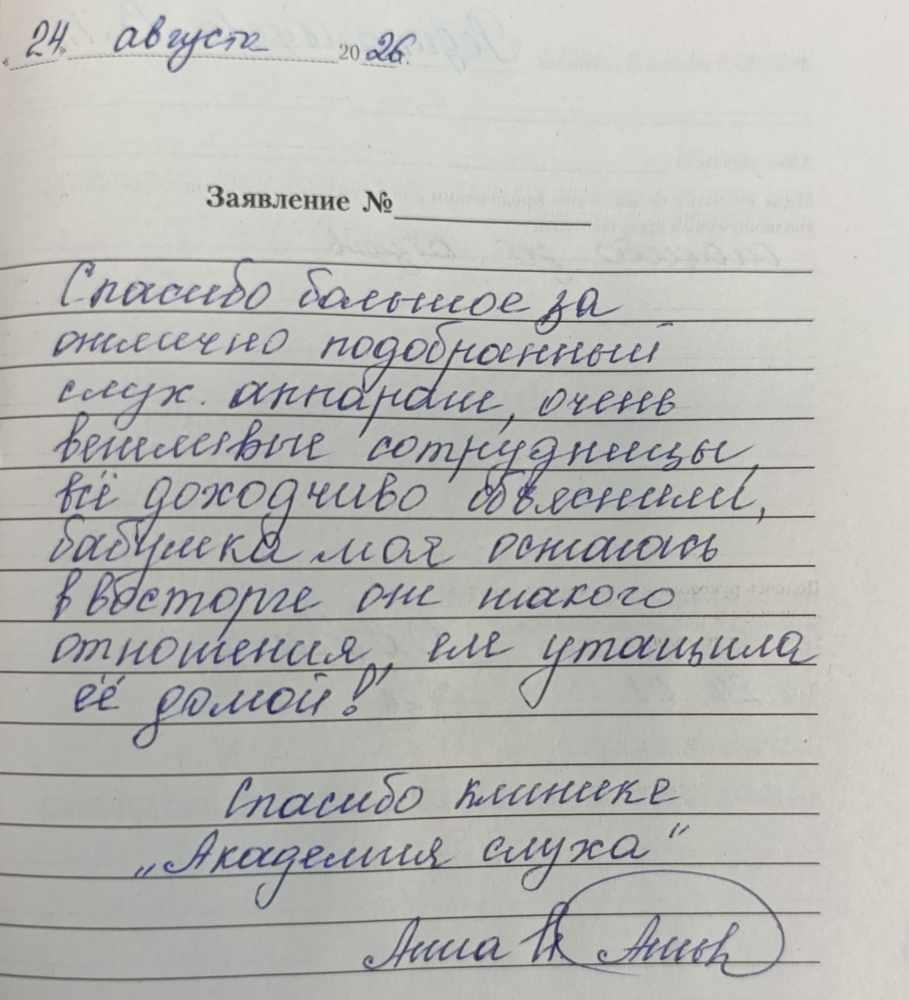 24 августа 2026.
Заявление №
Спасибо большое за
отлично подобранный
слух. аппарат, очень
вежливые сотрудницы,
всё доходчиво объяснили,
бабушка моя осталась
в восторге от такого
отношения, еле утащила
её домой!
Спасибо клинике
„Академия слуха“
Анна